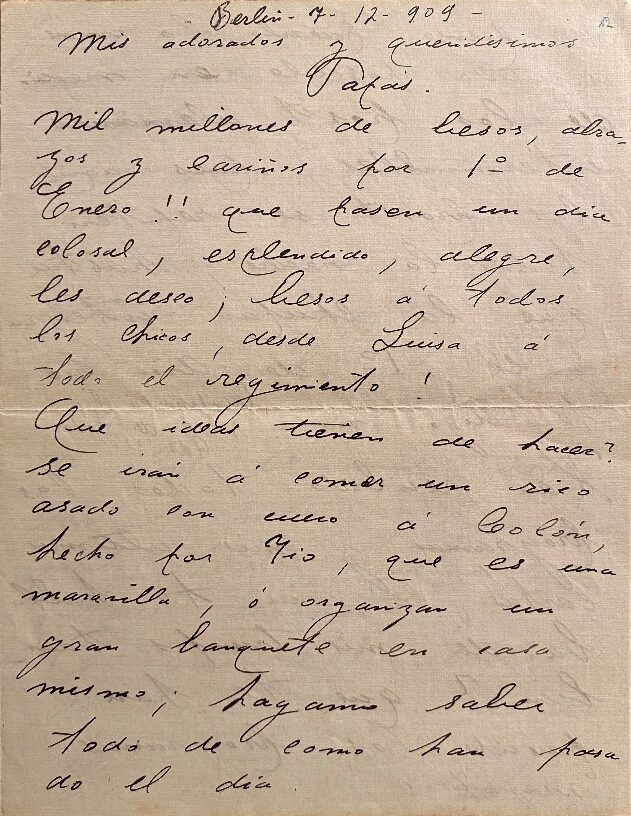 Berlin - 7 - 12 - 909 -
Mis adorados y queridísimos
Papás.
Mil millones de besos, abra-
zos y cariños por 1º de
Enero!! que pasen un dia
colosal, esplendido, alegre,
les deseo; besos á todos
los chicos, desde Luisa á
todo el regimiento!
Que ideas tienen de hacer?
se irán á comer un rico
asado con cuero á Colón,
hecho por Tio, que es una
maravilla, ó organizan un
gran banquete en casa
mismo; hagamo saber
todo de como han pasa
do el dia